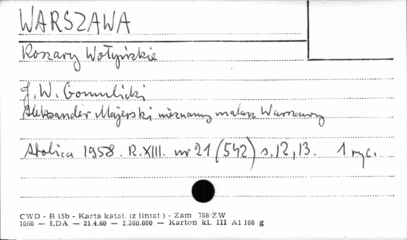 WARSZAWA
Koszary Wołyńskie
J. W. Gomulicki
Aleksander Majerski nieznany malarz Warszawy
Stolica 1958. R. XIII. nr 21 (542) s. 12, 13. 1 ryc.
CWD - B 15b - Karta katal. (z liniat) - Zam 788/ZW
1060 — ŁDA — 21.4.60 — 2.200.000 — Karton kl. III A1 160 g